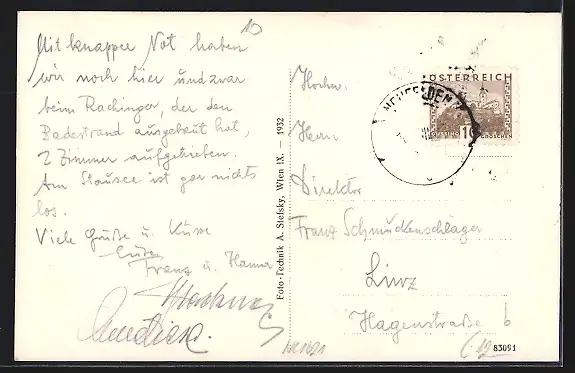 Mit knapper Not haben
wir noch hier und zwar
beim Rachinger, der den
Badestrand ausgebaut hat,
2 Zimmer aufgetrieben.
Am Stausee ist gar nichts
los.
Viele Grüße u. Küsse
Eure
Franz u. Hanna
Foto-Technik A. Stefsky, Wien IX. — 1932
ÖSTERREICH
GÜSSING 10 GROSCHEN
Hochw.
Herrn
Direktor
Franz Schmuckenschläger
Linz
Hagenstraße 6
83091